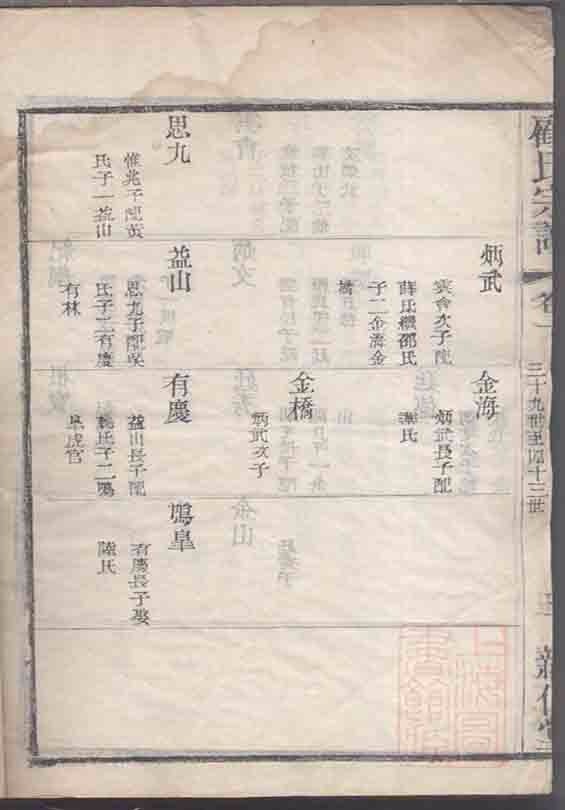 顧氏宗譜
卷一
三十九世至四十三世
炳武
次子配
薛氏繼邵氏
子二金海金
橋
金海
炳武長子配
氏
金橋
炳武次子
思九
惟兆子配黃
氏子一益山
益山
思九子配吳
氏子二有慶
有林
有慶
益山長子配
姚氏子二鳴
皋虎官
鳴皋
有慶長子娶
陸氏
上海圖書館藏